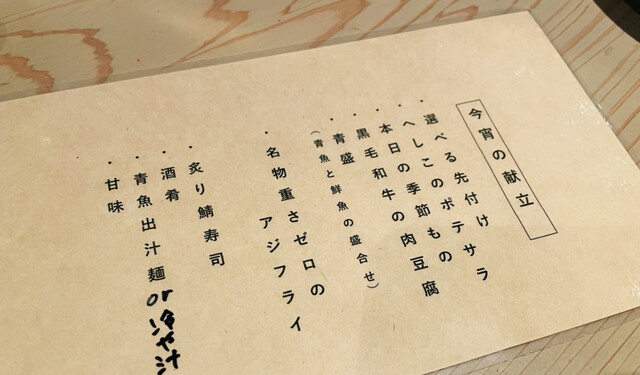 今宵の献立
・選べる先付け
・へしこのポテサラ
・本日の季節もの
・黒毛和牛の肉豆腐
・青盛
（青魚と鮮魚の盛合せ）
・名物重さゼロの
アジフライ
・炙り鯖寿司
・酒肴
・青魚出汁麺or冷や汁
・甘味